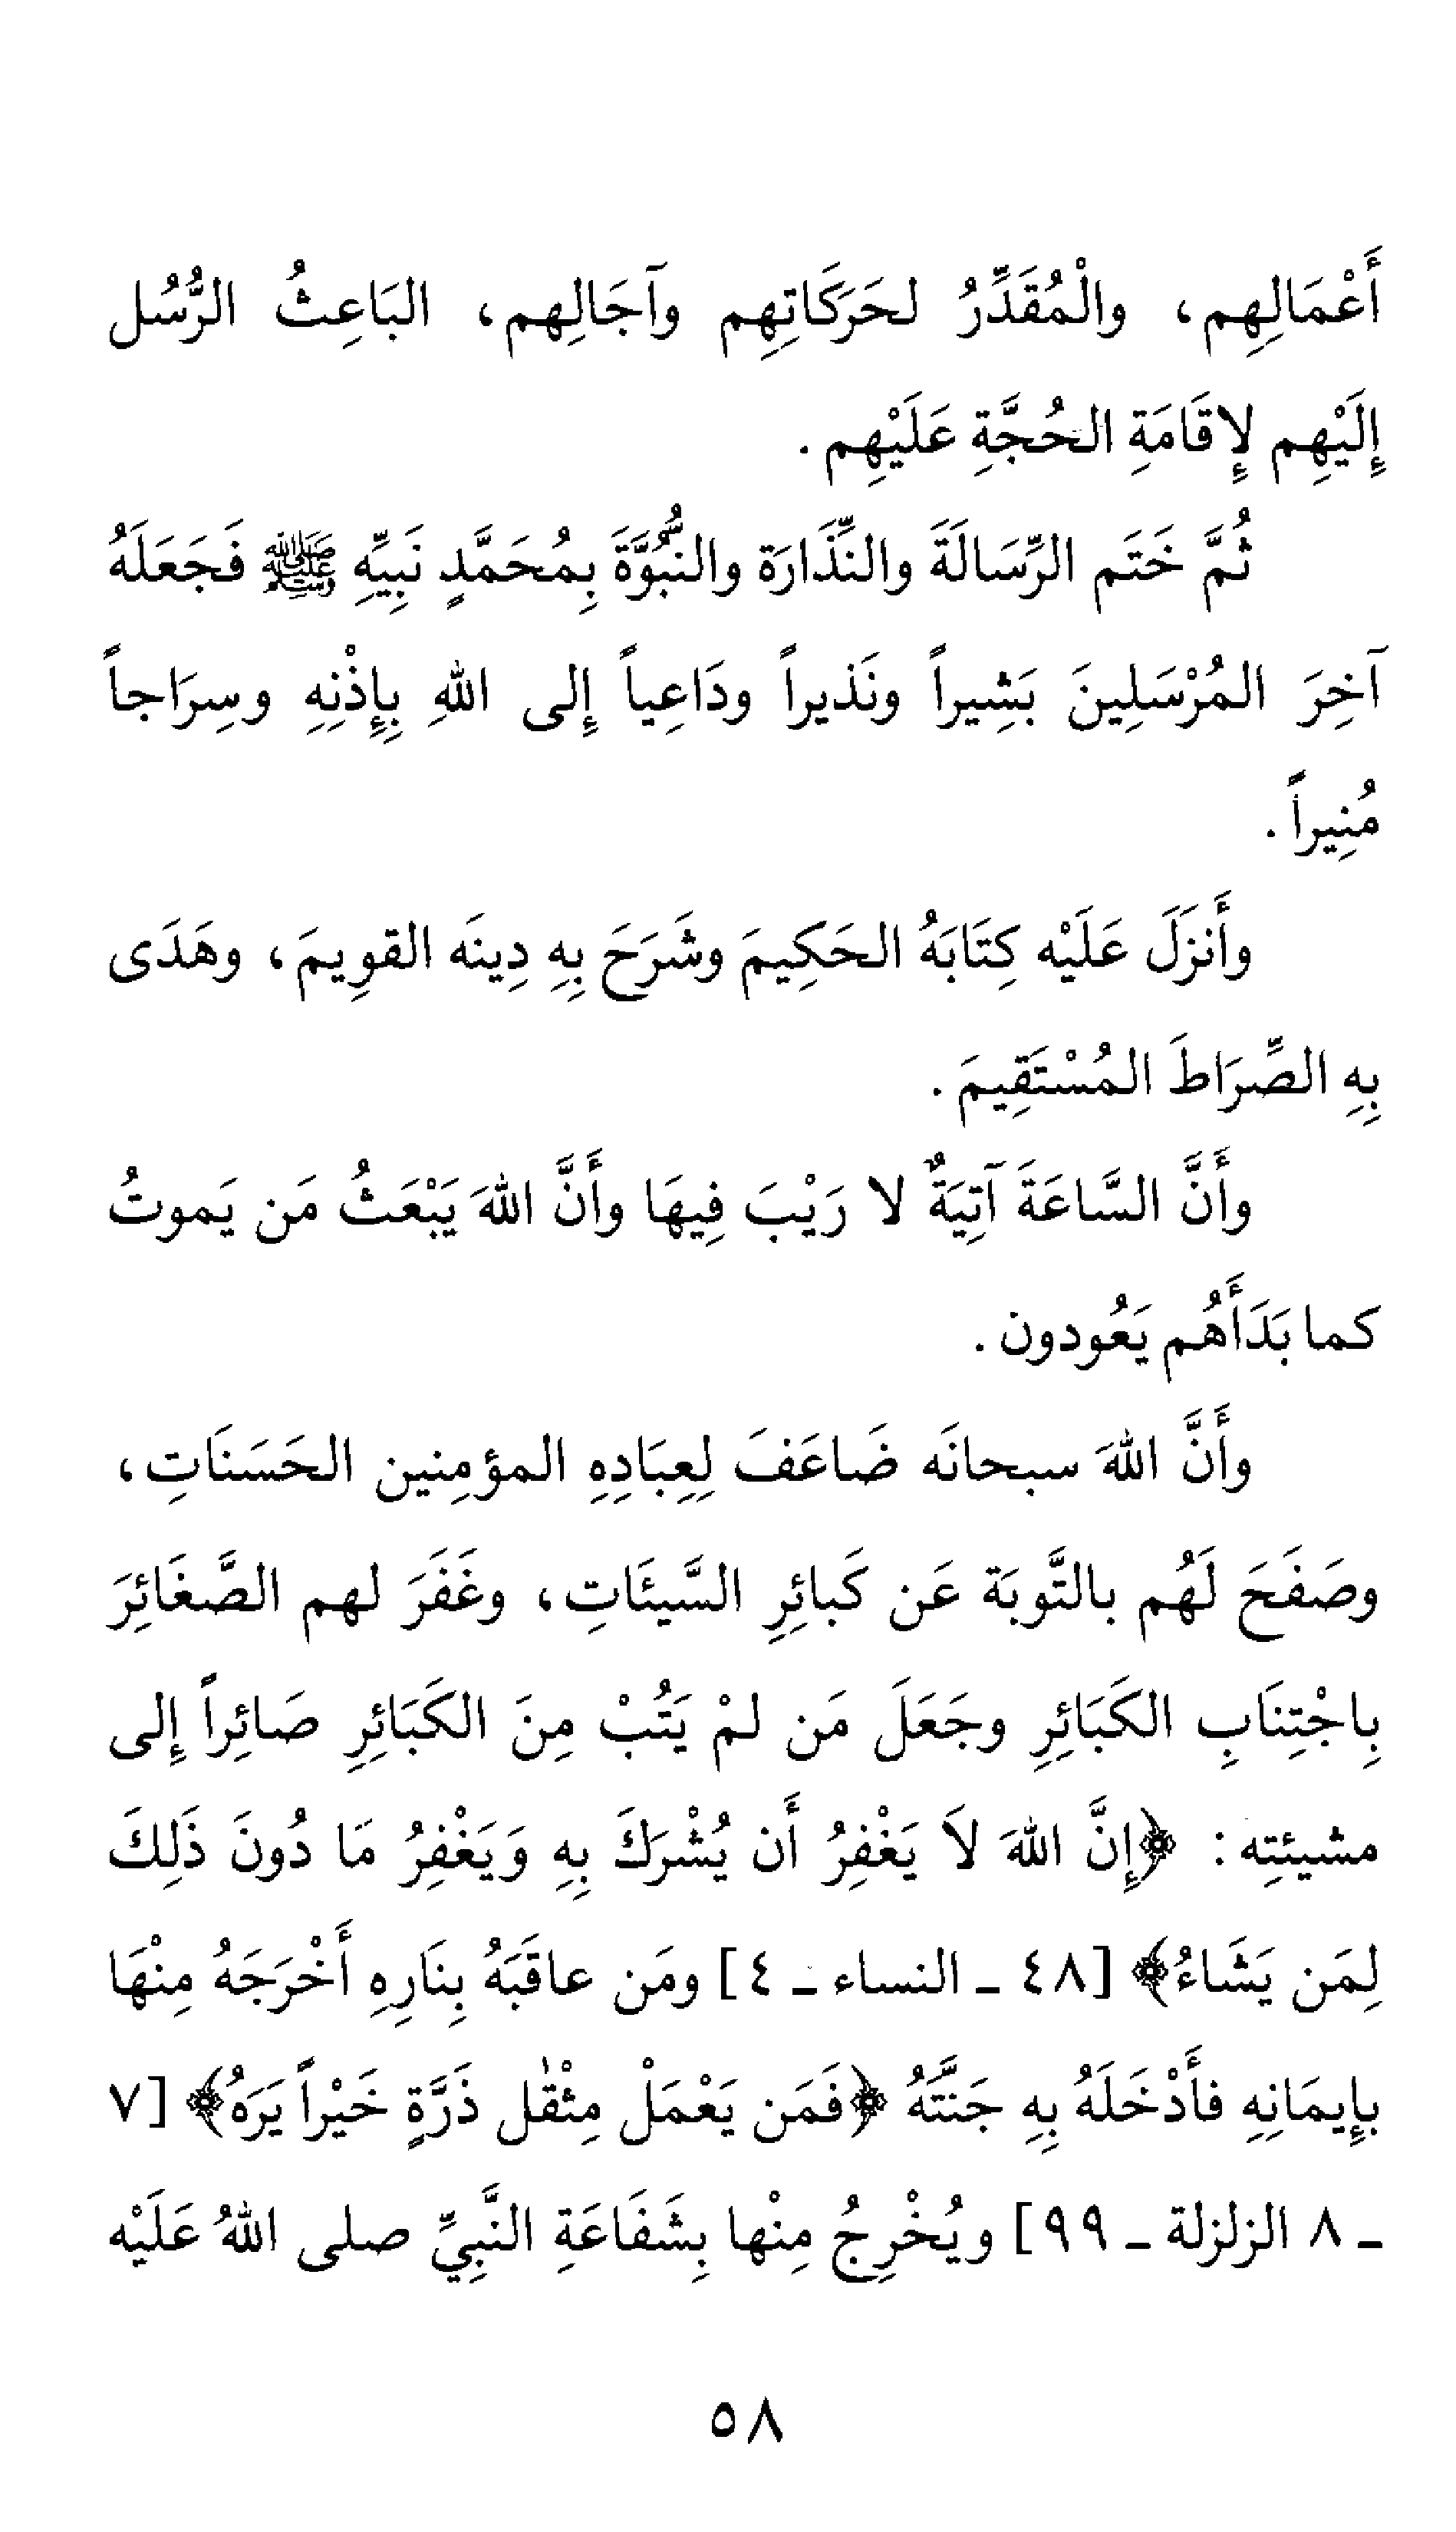 أَعْمَالِهِم، والْمُقَدِّرُ لحَرَكَاتِهِم وآجَالِهِم، البَاعِثُ الرُّسُل
إِلَيْهِم لإِقَامَةِ الحُجَّةِ عَلَيْهِم.
ثُمَّ خَتَم الرِّسَالَةَ والنِّذَارَة والنُّبُوَّةَ بِمُحَمَّدٍ نَبِيِّهِ ﷺ فَجَعَلَهُ
آخِرَ المُرْسَلِينَ بَشِيراً ونَذيراً ودَاعِياً إِلى اللهِ بِإِذْنِهِ وسِرَاجاً
مُنِيراً.
وأَنزَلَ عَلَيْه كِتَابَهُ الحَكِيمَ وشَرَحَ بِهِ دِينَه القوِيمَ، وهَدَى
بِهِ الصِّرَاطَ المُسْتَقِيمَ.
وأَنَّ السَّاعَةَ آتِيَةٌ لا رَيْبَ فِيهَا وأَنَّ اللهَ يَبْعَثُ مَن يَموتُ
كما بَدَأَهُم يَعُودون.
وأَنَّ اللهَ سبحانَه ضَاعَفَ لِعِبَادِهِ المؤمِنين الحَسَنَاتِ،
وصَفَحَ لَهُم بالتَّوبَة عَن كَبائِرِ السَّيئَاتِ، وغَفَرَ لهم الصَّغَائِرَ
بِاجْتِنَابِ الكَبَائِرِ وجَعَلَ مَن لمْ يَتُبْ مِنَ الكَبَائِرِ صَائِراً إِلى
مشيئتِه: ﴿إِنَّ اللهَ لاَ يَغْفِرُ أَن يُشْرَكَ بِهِ وَيَغْفِرُ مَا دُونَ ذَلِكَ
لِمَن يَشَاءُ﴾ [٤٨ ـ النساء ـ ٤] ومَن عاقَبَهُ بِنَارِهِ أَخْرَجَهُ مِنْهَا
بِإِيمَانِهِ فأَدْخَلَهُ بِهِ جَنَّتَهُ ﴿فَمَن يَعْمَلْ مِثْقٰل ذَرَّةٍ خَيْراً يَرَهُ﴾ [٧
ـ ٨ الزلزلة ـ ٩٩] ويُخْرِجُ مِنْها بِشَفَاعَةِ النَّبِيِّ صلى اللهُ عَلَيْه
٥٨